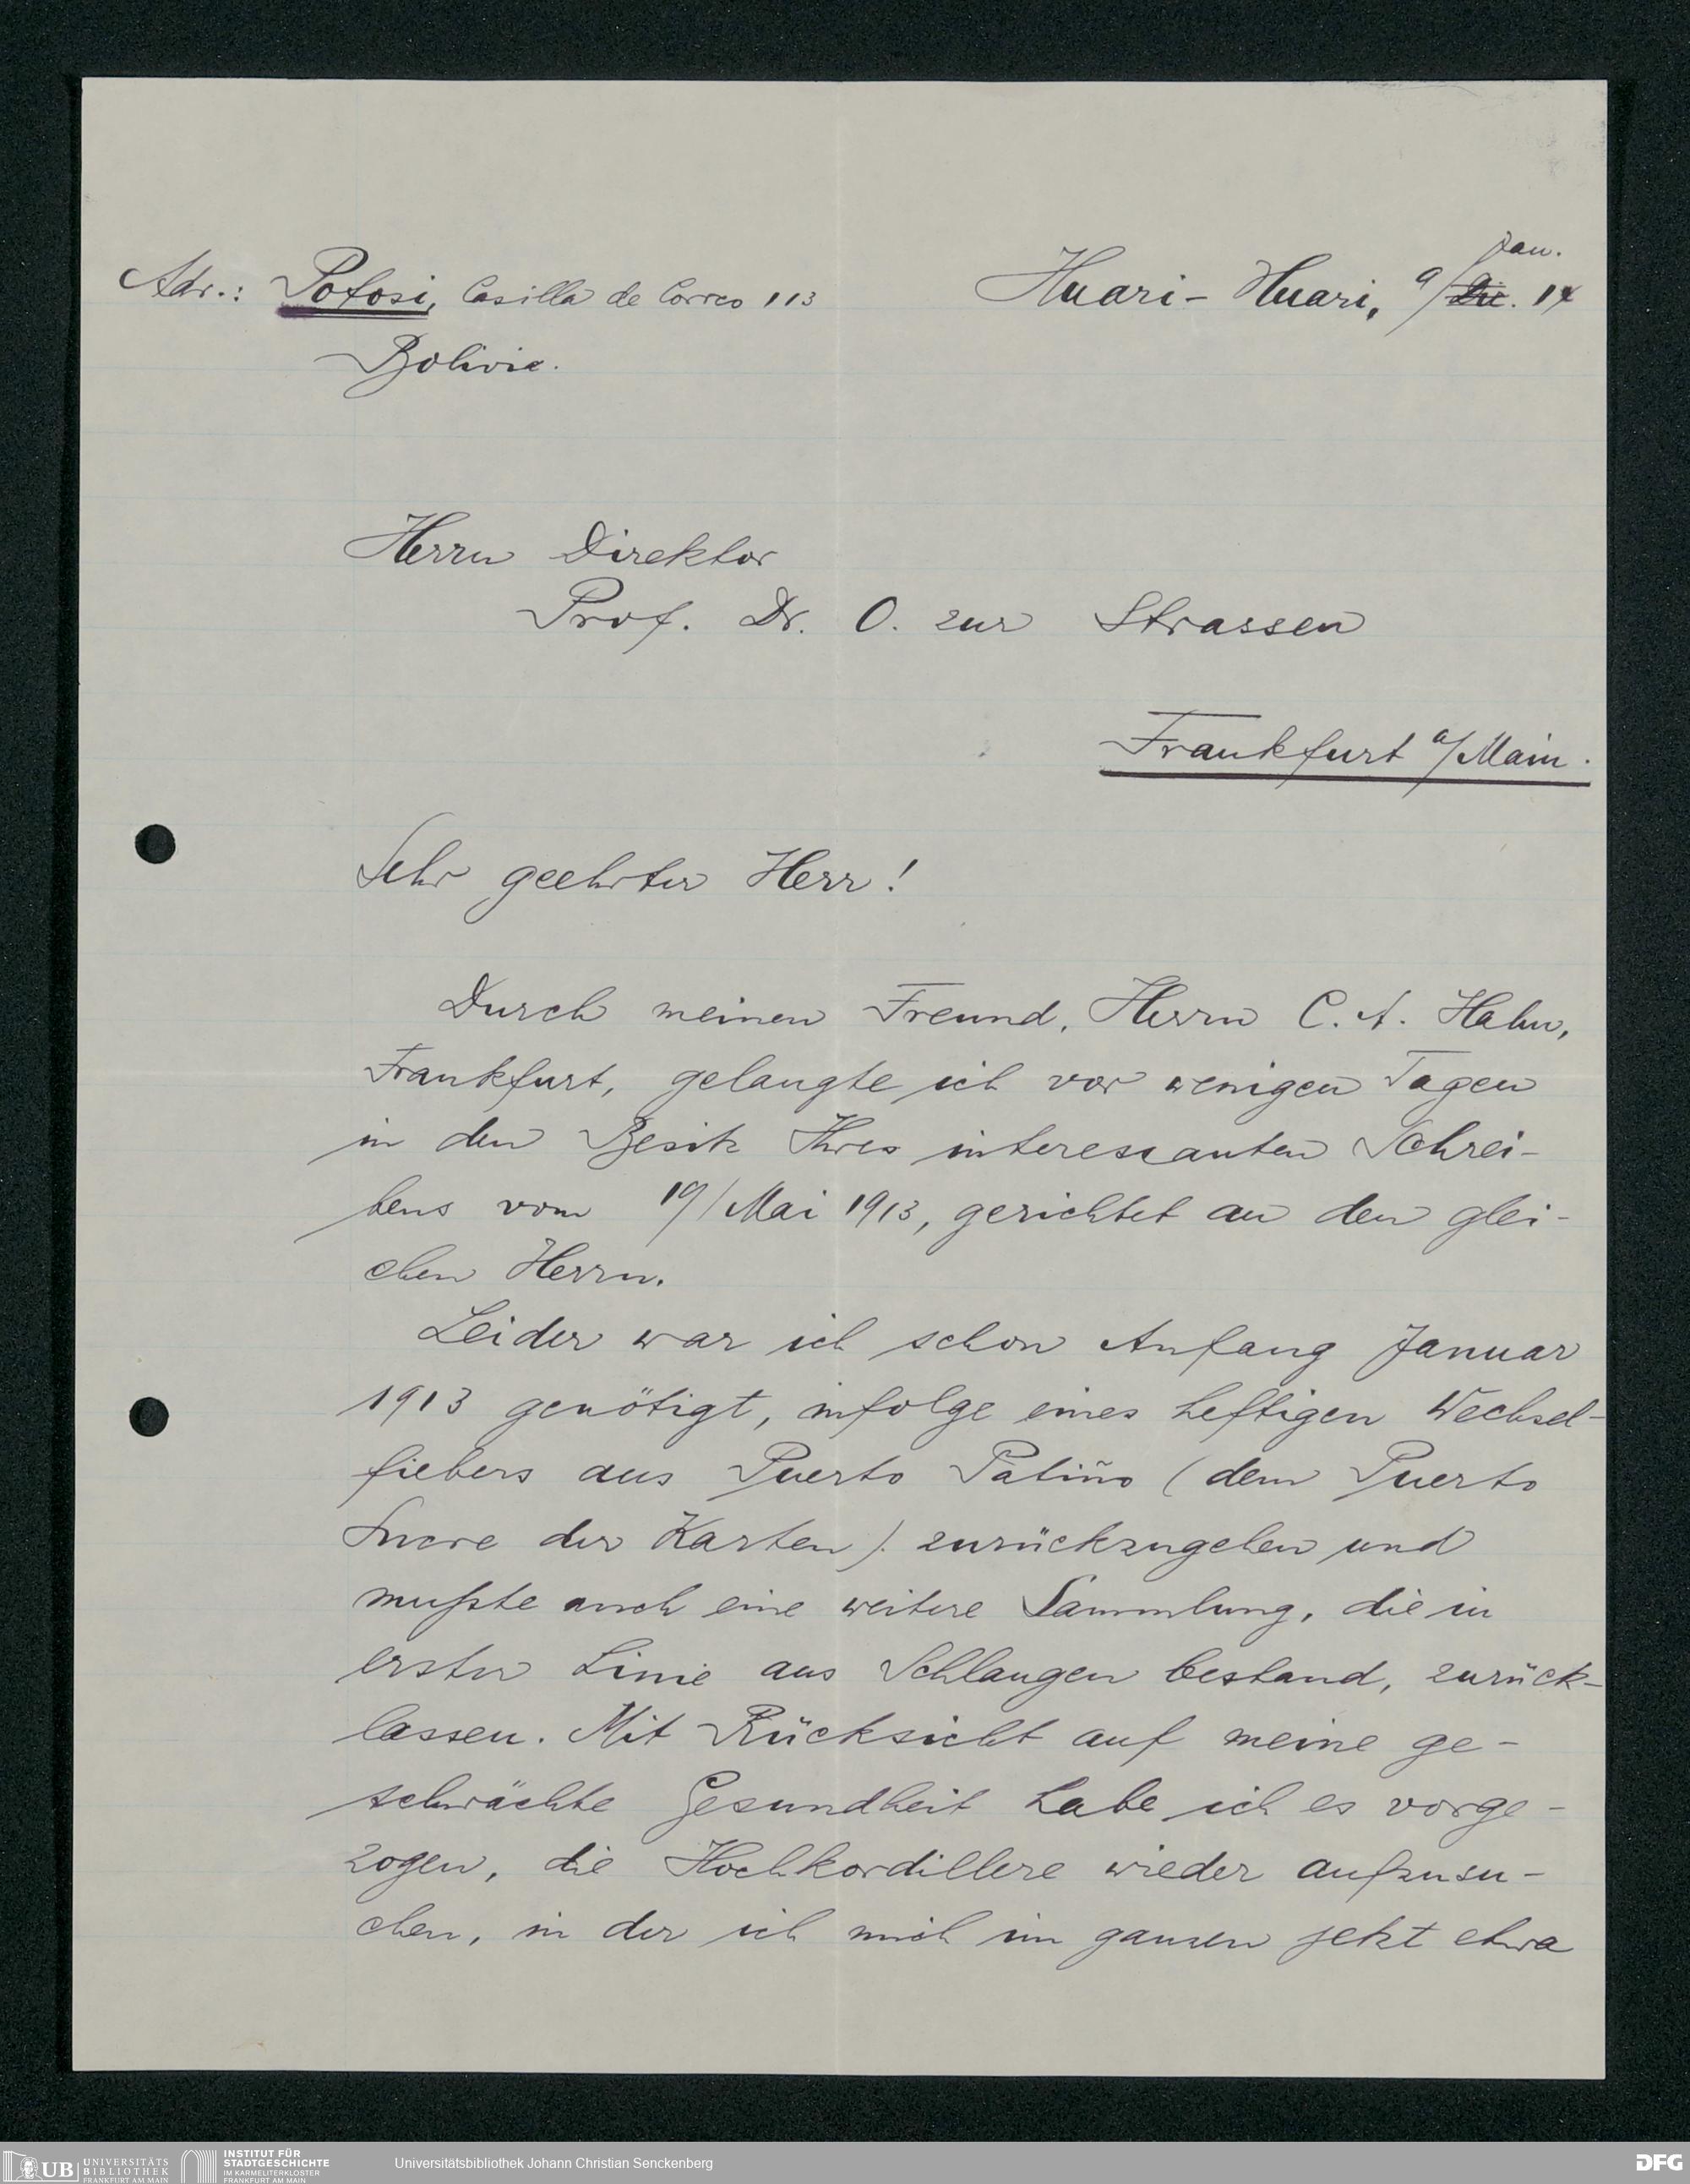 Adr.: Potosi, Casilla de Correo 113
Bolivia.
Huari-Huari, 9/Jan. 14
Herrn Direktor
Prof. Dr. O. zur Strassen
Frankfurt a/Main.
Sehr geehrter Herr!
Durch meinen Freund, Herrn C. A. Hahn,
Frankfurt, gelangte ich vor wenigen Tagen
in den Besitz Ihres interessanten Schrei-
bens vom 19/Mai 1913, gerichtet an den glei-
chen Herrn.
Leider war ich schon Anfang Januar
1913 genötigt, infolge eines heftigen Wechsel-
fiebers aus Puerto Patiño (dem Puerto
Sucre der Karten). zurückzugehen und
mußte auch eine weitere Sammlung, die in
erster Linie aus Schlangen bestand, zurück-
lassen. Mit Rücksicht auf meine ge-
schwächte Gesundheit habe ich es vorge-
zogen, die Hochkordillere wieder aufzusu-
chen, in der ich mich im ganzen jetzt etwa
UB UNIVERSITÄTS
BIBLIOTHEK
FRANKFURT AM MAIN
INSTITUT FÜR
STADTGESCHICHTE
IM KARMELITERKLOSTER
FRANKFURT AM MAIN
Universitätsbibliothek Johann Christian Senckenberg
DFG